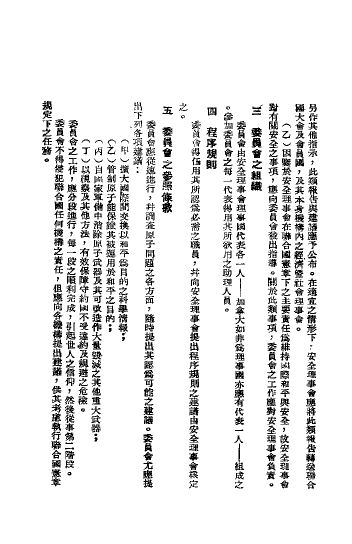 另作其他指示,此類報告與建議應予公布。在適宜之情形下,安全理事會應將此類報告轉送聯合
國大會及會員國,及其本身機構內之經濟暨社會理事會。
(乙)因鑒於安全理事會在聯合國憲章下之主要責任為維持國際和平與安全,故安全理事會
對有關安全之事項,應向委員會發出指導。關於此類事項,委員會之工作應對安全理事會負責。
三 委員會之組織
委員會由安全理事會理事國代表各一人——加拿大如非為理事國亦應有代表一人——組成之
。參加委員會之每一代表得用其所欲用之助理人員。
四 程序規則
委員會得任用其所認為必需之職員,并向安全理事會提出程序規則之建議由安全理事會核定
之。
五 委員會之參照條款
委員會應從速進行,并調查原子問題之各方面,隨時提出其認為可能之建議。委員會尤應提
出下列各項建議:
(甲)擴大國際間交換以和平為目的之科學情報;
(乙)管制原子能保證其被運用於和平之目的;
(丙)由國家軍備中消除原子武器及其可改造作大量毀滅之其他重大武器;
(丁)以視察及其他方法,有效保障守約國不受違約及規避之危險。
委員會之工作,應分段進行,每一段之順利完成,引起世人之信仰,然後從事第二階段。
委員會不得侵犯聯合國任何機構之責任,但應向各機構提出建議,俾其考慮執行聯合國憲章
規定下之任務。